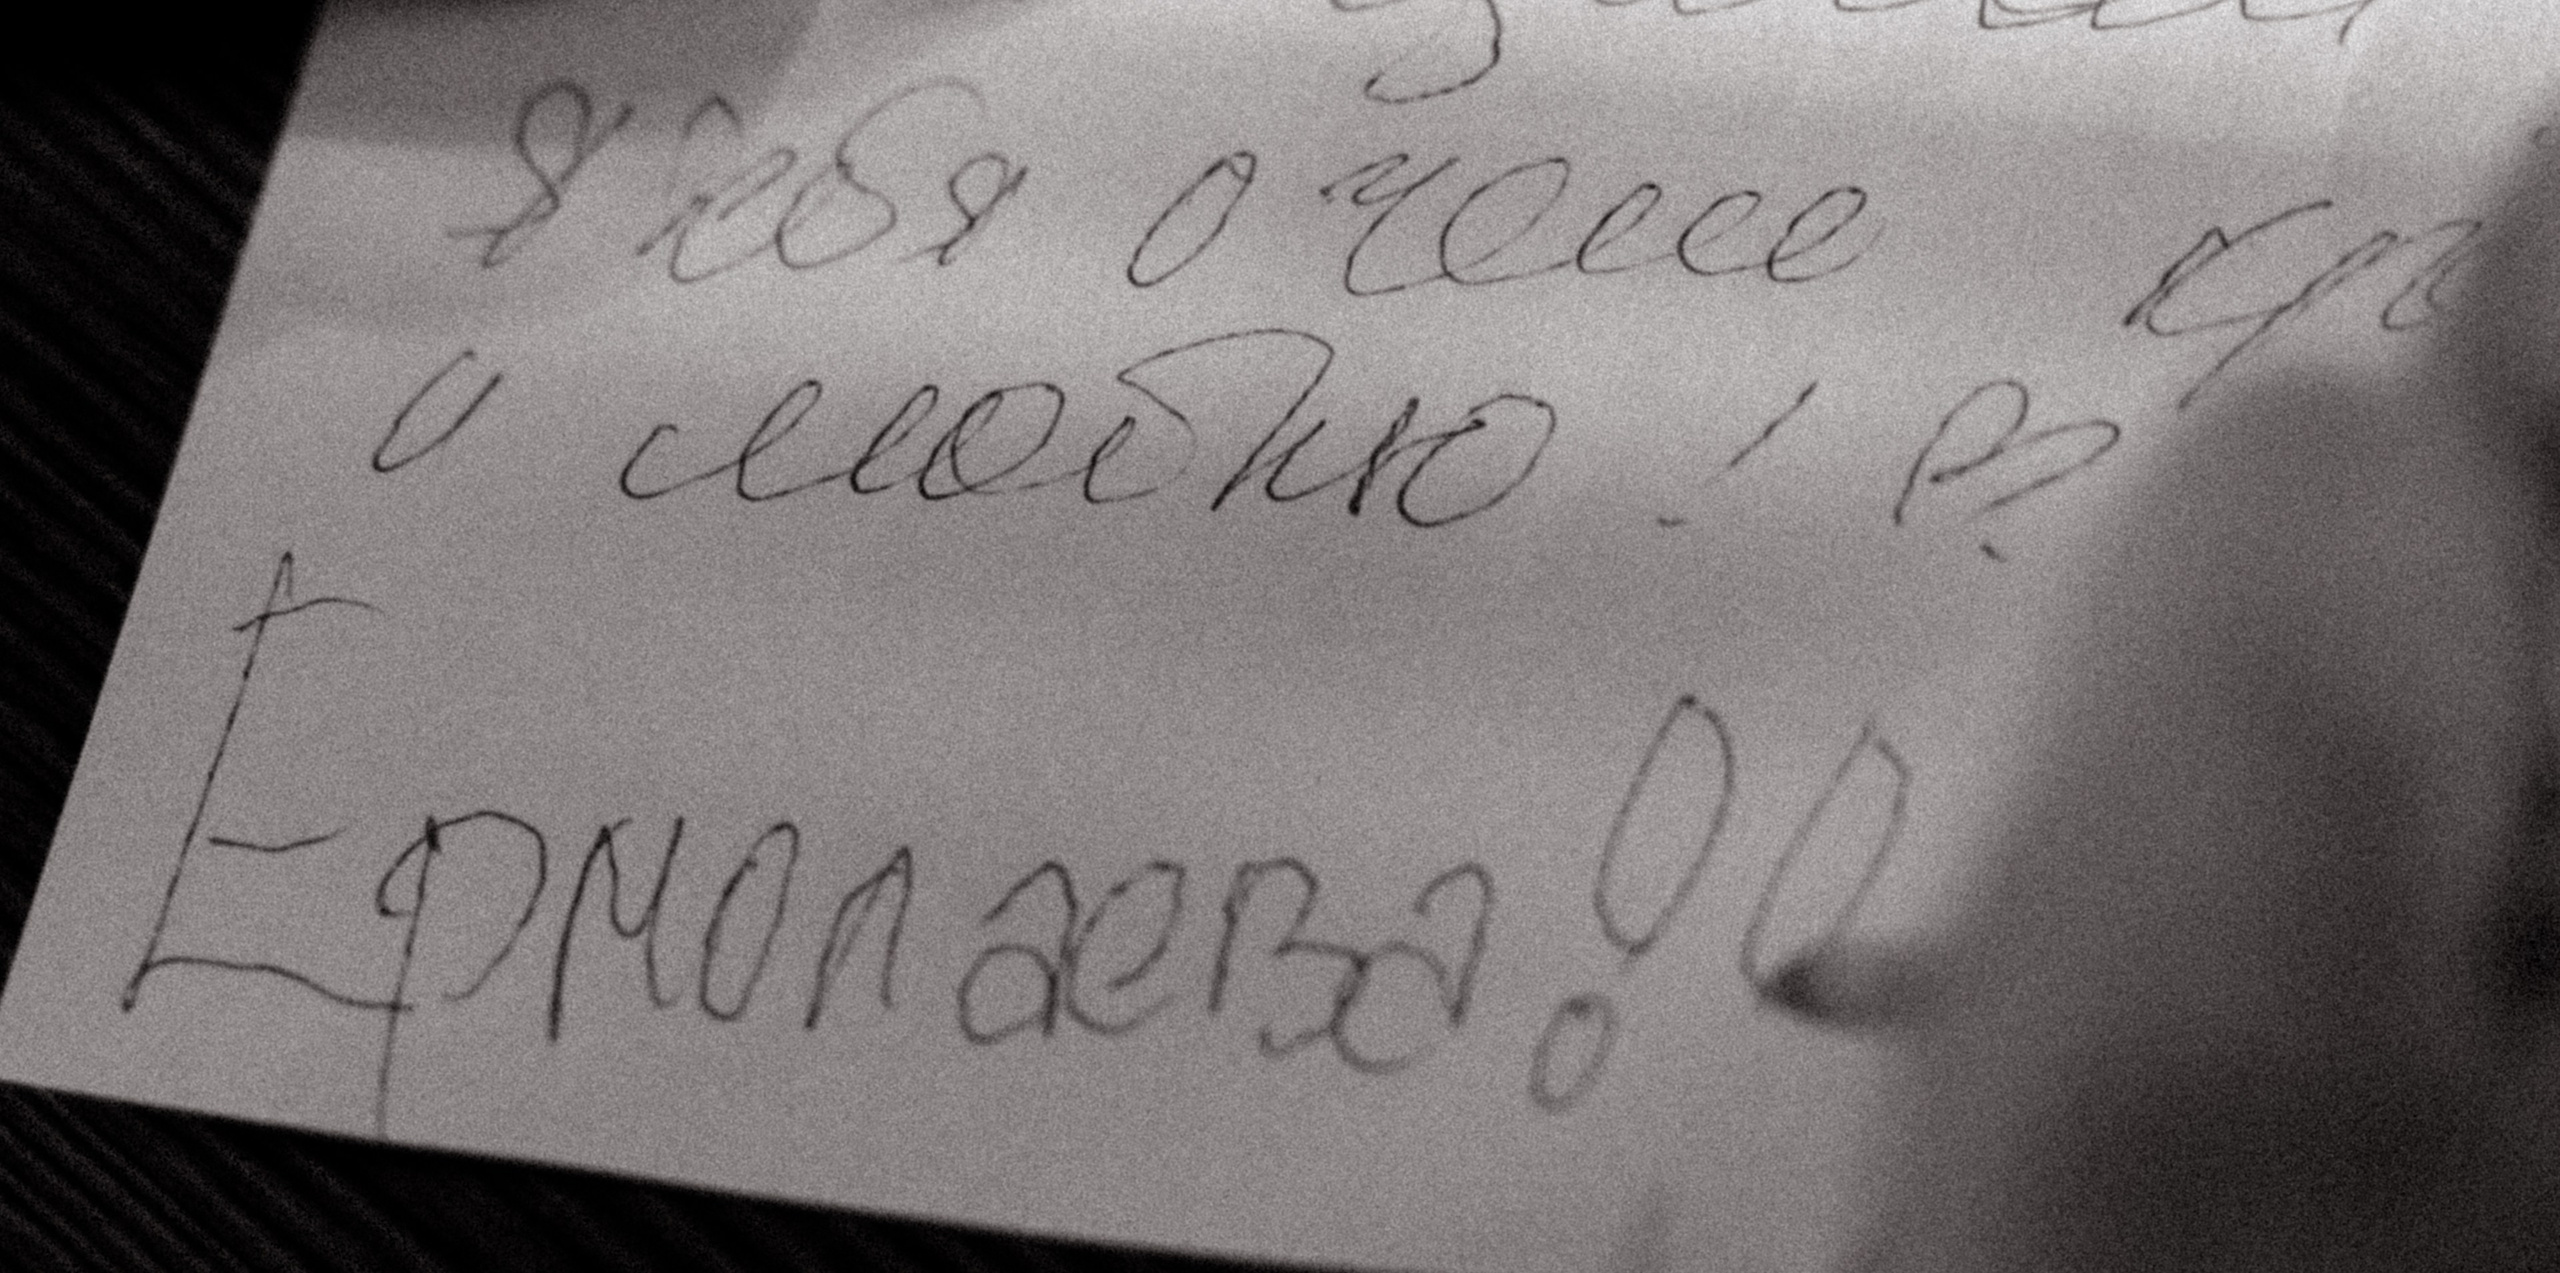 Я тебя очень
и люблю!
Ермолаева!!